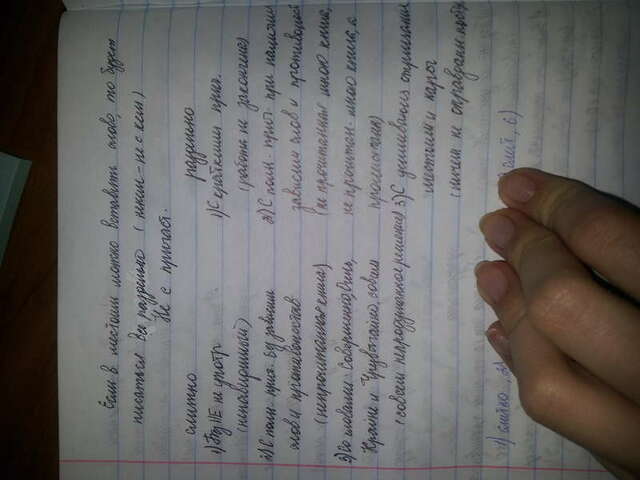 Если в местоим можно вставить слово, то будет
писаться все раздельно (неким - не с кем)
Не с причаст.
слитно
раздельно
1) Без НЕ не употр
(ненавидимый)
2) С полн. прич. без зависим
слов и противопостав
(непрочитанная книга)
3) Со словами: Совершенно, Очень,
Крайне и Чрезвычайно, совсем
(совсем непродуманное решение)
1) С краткими прич.
(работа не закончена)
2) С полн. прич. при наличии
зависим слов и противопост
(не прочитанная мною книга,
не прочитан. мною книга, а
пролистана)
3) С усиливающ отрицание
местоим и нареч
(ничем не оправданы поступ
1) слитно, 2)
слит, 6)